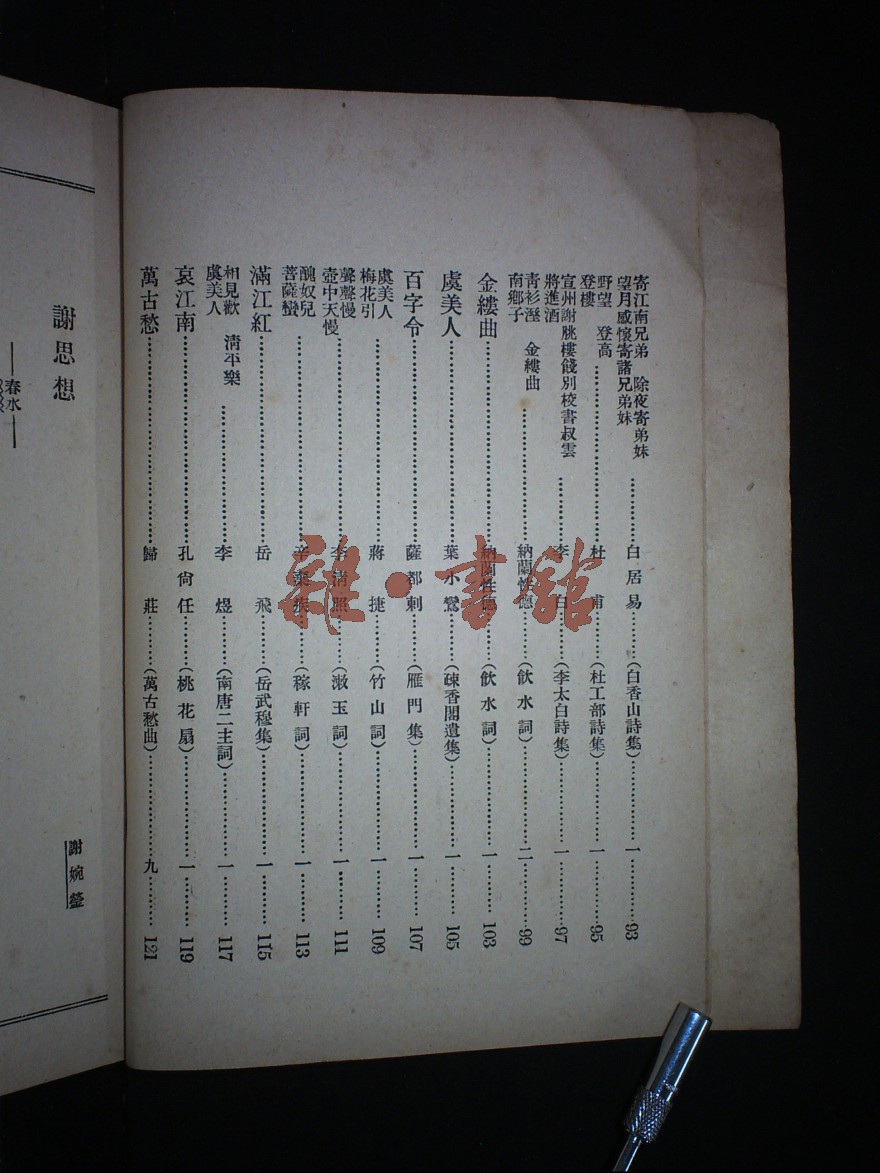 寄江南兄弟　除夜寄弟妹
望月感懷寄諸兄弟妹……白居易……(白香山詩集)……一……93
野望　登高
登樓……杜甫……(杜工部詩集)……一……95
宣州謝脁樓餞別校書叔雲
將進酒……李白……(李太白詩集)……一……97
靑衫溼　金縷曲
南鄉子……納蘭性德……(飲水詞)……二……99
金縷曲……納蘭性德……(飲水詞)……一……103
虞美人……葉小鸞……(疎香閣遺集)……一……105
百字令……薩都剌……(雁門集)……一……107
虞美人
梅花引……蔣捷……(竹山詞)……一……109
聲聲慢
壺中天慢……李淸照……(漱玉詞)……一……111
醜奴兒
菩薩蠻……辛棄疾……(稼軒詞)……一……113
滿江紅……岳飛……(岳武穆集)……一……115
相見歡　淸平樂
虞美人……李煜……(南唐二主詞)……一……117
哀江南……孔尙任……(桃花扇)……一……119
萬古愁……歸莊……(萬古愁曲)……九……121
謝婉瑩
謝思想
——春水——
雜·書館